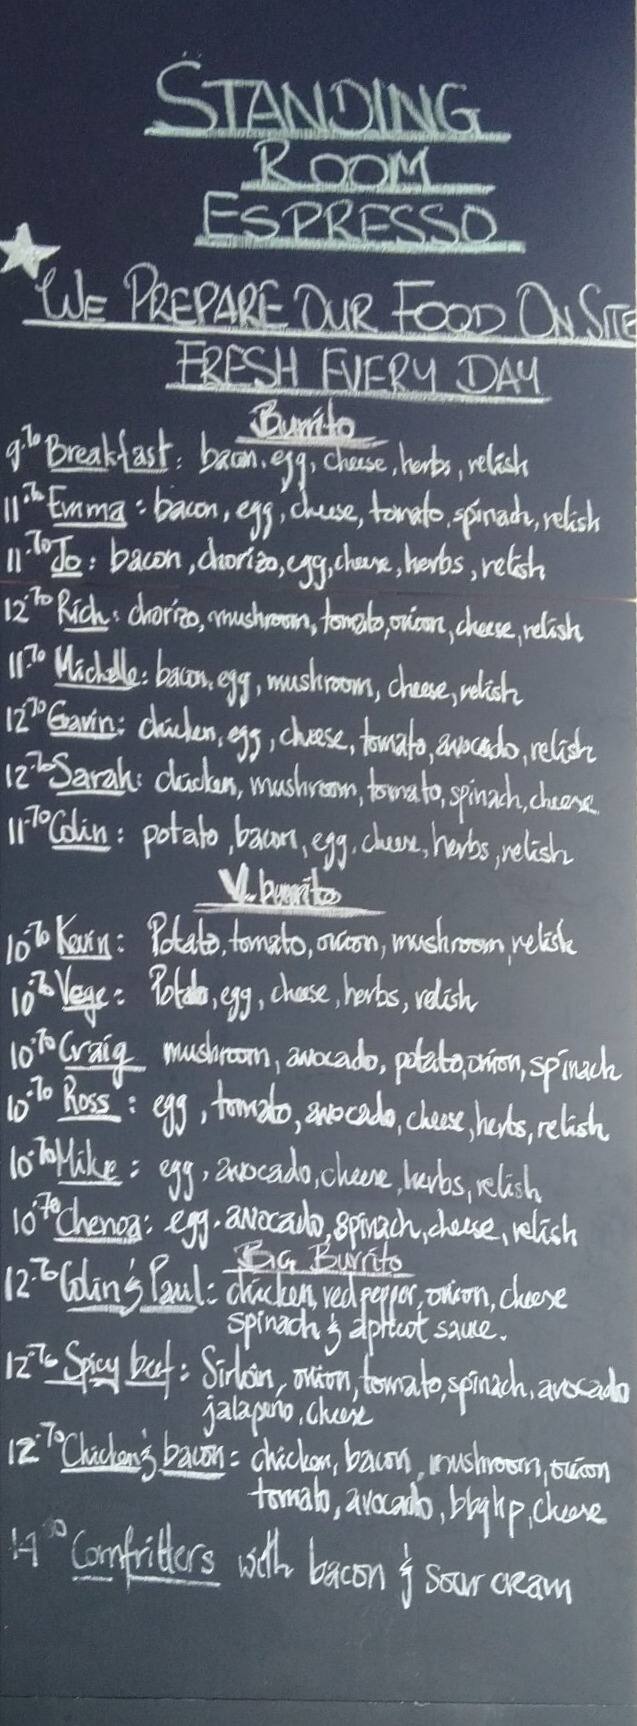 STANDING
ROOM
ESPRESSO
WE PREPARE OUR FOOD ON SITE
FRESH EVERY DAY
Burrito
9.70 Breakfast: bacon, egg, cheese, herbs, relish
11.70 Emma: bacon, egg, cheese, tomato, spinach, relish
11.70 Jo: bacon, chorizo, egg, cheese, herbs, relish
12.70 Rich: chorizo, mushroom, tomato, onion, cheese, relish
11.70 Michelle: bacon, egg, mushroom, cheese, relish
12.70 Gavin: chicken, egg, cheese, tomato, avocado, relish
12.70 Sarah: chicken, mushroom, tomato, spinach, cheese
11.70 Colin: potato, bacon, egg, cheese, herbs, relish
V. burrito
10.70 Kevin: Potato, tomato, onion, mushroom, relish
10.70 Vege: Potato, egg, cheese, herbs, relish
10.70 Craig mushroom, avocado, potato, onion, spinach
10.70 Ross: egg, tomato, avocado, cheese, herbs, relish
10.70 Mike: egg, avocado, cheese, herbs, relish
10.70 Chenoa: egg, avocado, spinach, cheese, relish
BIG Burrito
12.70 Colin & Paul: chicken, red pepper, onion, cheese
spinach & apricot sauce.
12.70 Spicy beef: Sirloin, onion, tomato, spinach, avocado
jalapeño, cheese
12.70 Chicken & bacon: chicken, bacon, mushroom, onion
tomato, avocado, cheese
Cornfritters with bacon & sour cream